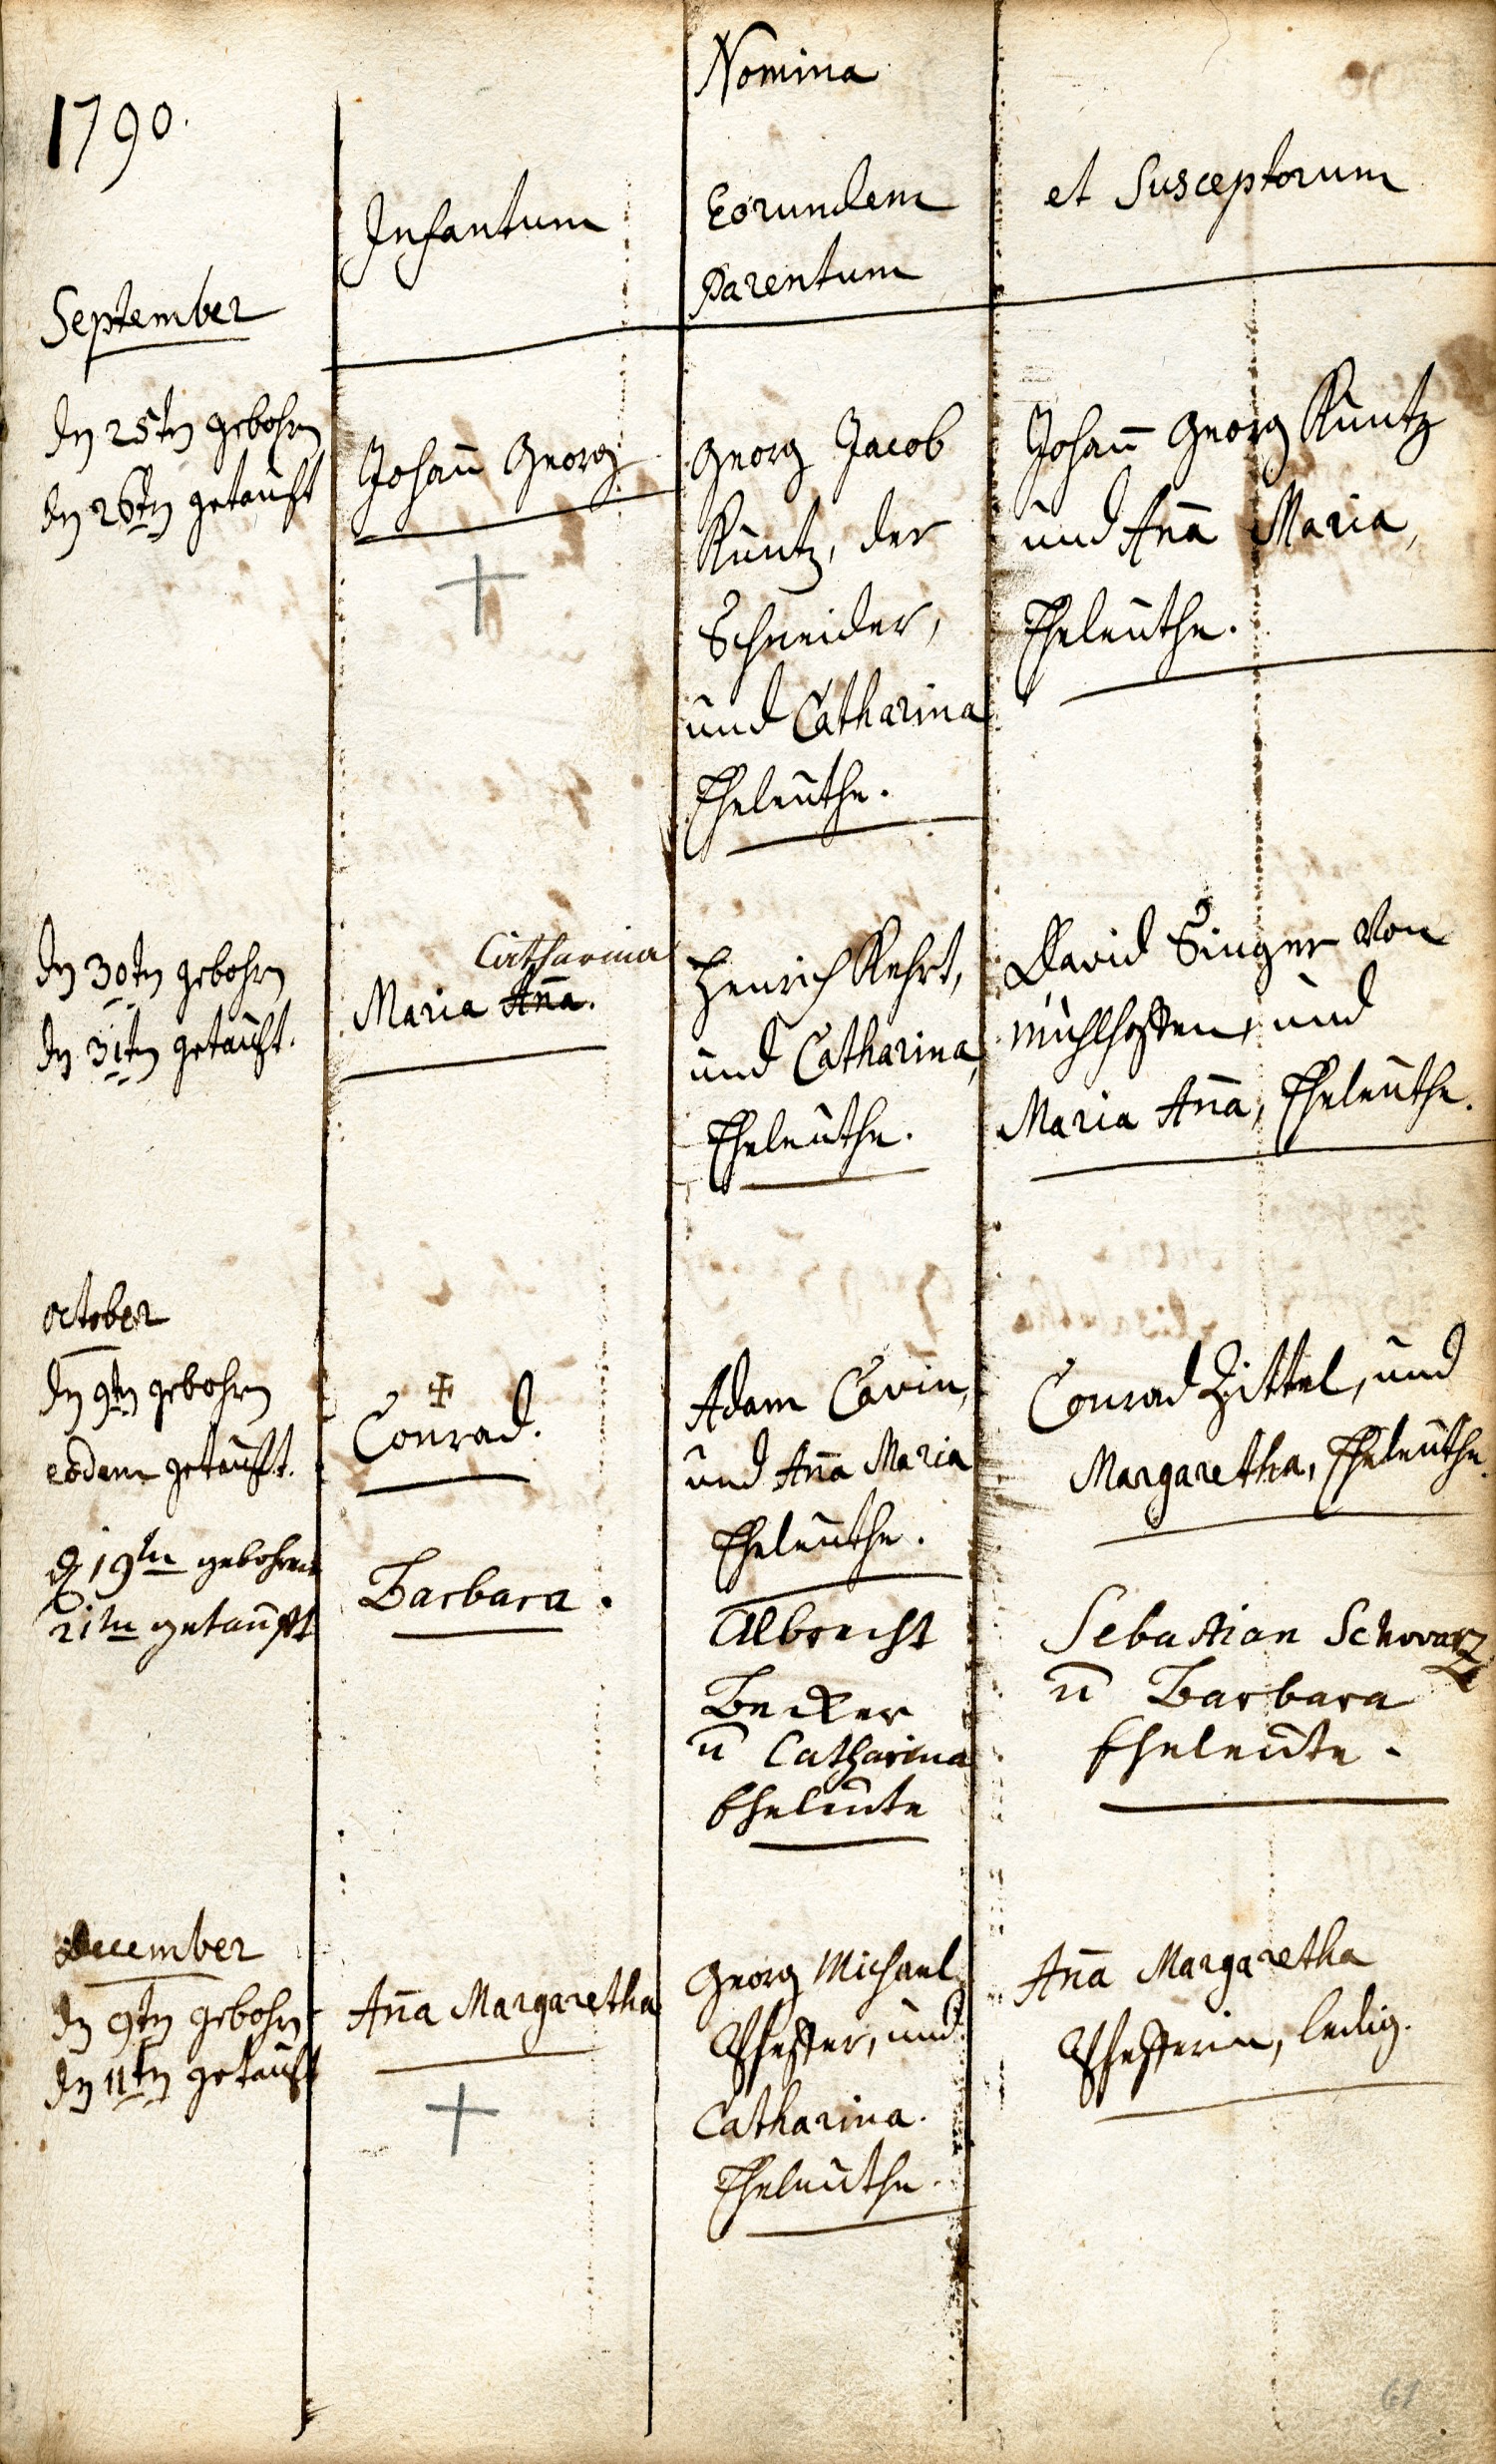 1790.
Nomina
Infantum
Eorundem
Parentum
et Susceptorum
September
dn 25tn gebohrn
dn 26tn getaüft
Johañ Georg
Georg Jacob
Küntz, der
Schneider,
und Catharina
Eheleüthe.
Johañ Georg Küntz
ünd Aña Maria,
Eheleüthe.
dn 30tn gebohrn
dn 31tn getaüft.
Catharina
Maria Aña.
Henrich Kehrt,
ünd Catharina,
Eheleüthe.
David Singer von
Mühlhoffen, ünd
Maria Aña, Eheleüthe.
October
dn 9tn gebohrn
eodem getaüft.
Conrad.
Adam Cavin,
ünd Aña Maria
Eheleüthe.
Conrad Zittel, ünd
Margaretha, Eheleüthe.
d 19tn gebohren
21tn getaufft
Barbara.
Albrecht
Becker
ũ Catharina
Eheleute
Sebastian Schwarz
ũ Barbara
Eheleute.
December
dn 9tn gebohrn
dn 11tn getaüft
Aña Margaretha
Georg Michael
Pfeffer, ünd
Catharina.
Eheleüthe.
Aña Margaretha
Pfefferin, ledig.
61